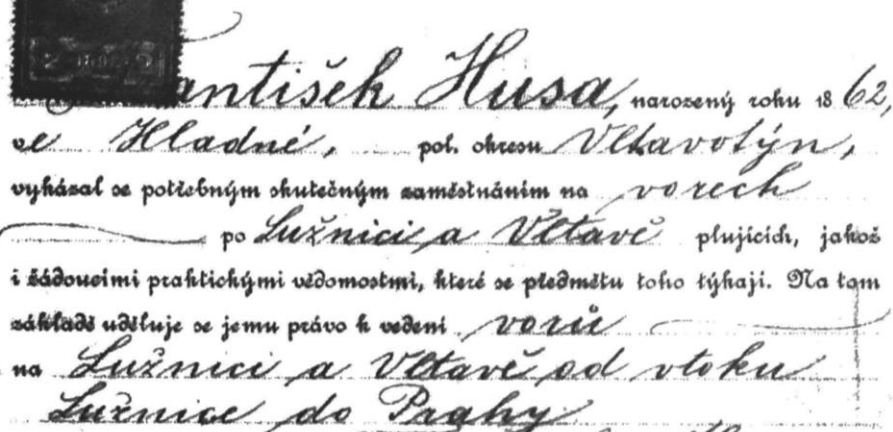 František Husa, narozený roku 1862,
ve Hladné, pol. okresu Vltavotýn,
vykázal se potřebným skutečným zaměstnáním na vorech
po Lužnici a Vltavě plujících, jakož
i žádoucími praktickými vědomostmi, které se předmětu toho týkají. Na tom
základě uděluje se jemu právo k vedení vorů
na Lužnici a Vltavě od vtoku
Lužnice do Prahy